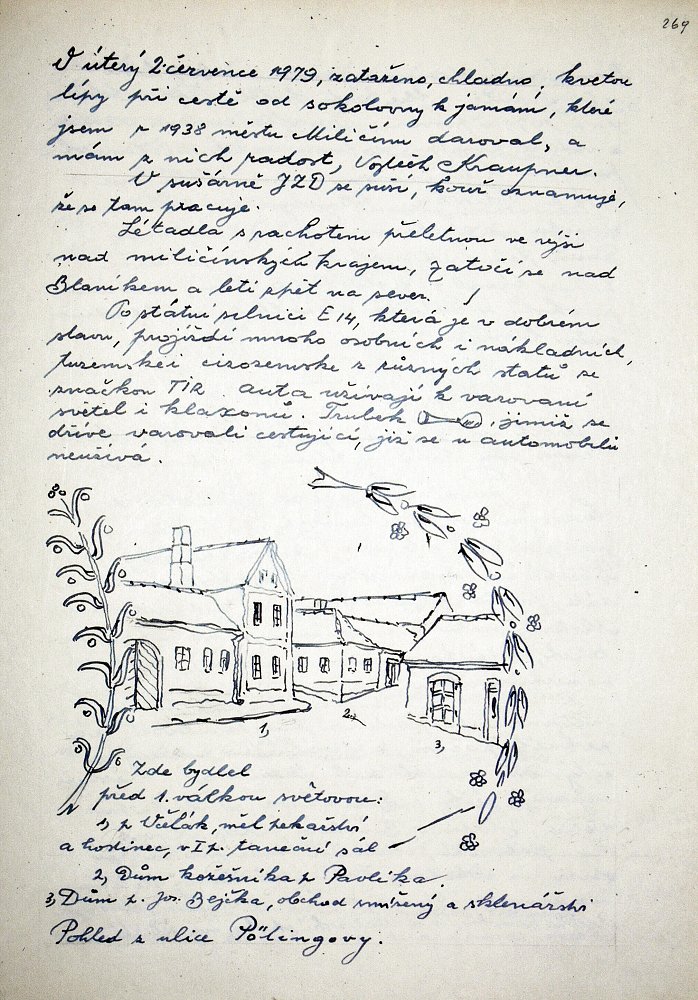 269
V úterý 2. července 1979, zataženo, chladno, kvetou
lípy při cestě od sokolovny k jamám, které
jsem r 1938 městu Miličínu daroval, a
mám z nich radost, Vojtěch Kraupner.
V sušárně JZD se suší, kouř oznamuje,
že se tam pracuje.
Letadla s rachotem přeletnou ve výši
nad miličínských krajem, zatočí se nad
Blaníkem a letí zpět na sever.
Po státní silnici E 14, která je v dobrém
stavu, projíždí mnoho osobních i nákladních,
tuzemské i cizozemske z různých statů se
značkou TIR. auta užívají k varovaní
světel i klaxonů. Trubek, jimiž se
dříve varovali cestující, již se u automobilů
neužívá.
1,
2,
3,
Zde bydlel
před 1. válkou světovou:
1, p Včelák, měl pekařství
a hostinec, v I p. taneční sál
2, Dům kožešníka p Pavlíka.
3, Dům p. Jos. Bejčka, obchod smíšený a sklenářství
Pohled z ulice Pölingovy.